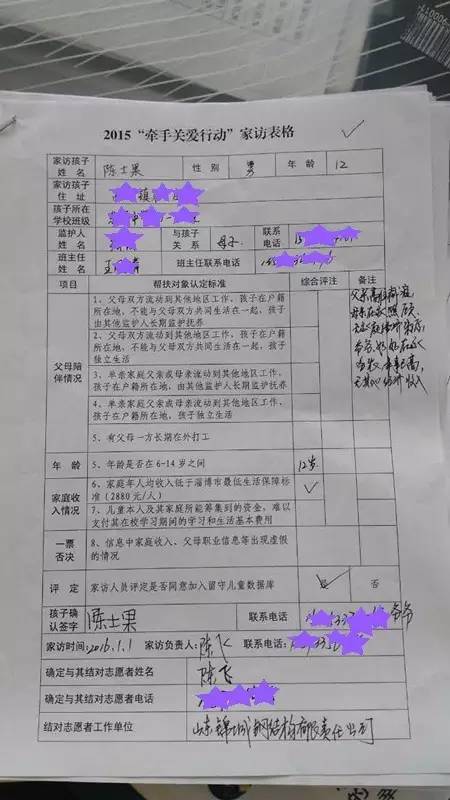 2015“牵手关爱行动”家访表格
家访孩子姓名 陈士果 性别 男 年龄 12
家访孩子住址 镇
孩子所在学校班级
监护人姓名 与孩子关系 母子 联系电话
班主任姓名 王 班主任联系电话
项目 帮扶对象认定标准 综合评注 备注
父母陪伴情况
1、父母双方流动到其他地区工作，孩子在户籍
所在地，不能与父母双方共同生活在一起，孩子
由其他监护人长期监护抚养
2、父母双方流动到其他地区工作，孩子在户籍
所在地，不能与父母双方共同生活在一起，孩子
独立生活
3、单亲家庭父亲或母亲流动到其他地区工作，
孩子在户籍所在地，由其他监护人长期监护抚养
4、单亲家庭父亲或母亲流动到其他地区工作，
孩子在户籍所在地，孩子独立生活
5、有父母一方长期在外打工
年龄 5、年龄是否在6-14岁之间 12岁
家庭收入情况
6、家庭年人均收入低于淄博市最低生活保障标
准（2880元/人） ✓
7、儿童本人及其家庭所能筹集到的资金，难以
支付其在校学习期间的学习和生活基本费用
一票否决
8、信息中家庭收入、父母职业信息等出现虚假
的情况
评定 家访人员评定是否同意加入留守儿童数据库 是 否
孩子确认签字 陈士果 联系电话 爷爷
家访时间：2016.1.1 家访负责人：陈飞 联系电话：
确定与其结对志愿者姓名 陈飞
确定与其结对志愿者电话
结对志愿者工作单位 山东锦城钢结构有限责任公司